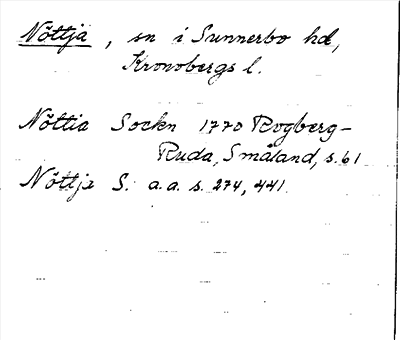 Nöttja, sn i Sunnerbo hd,
Kronobergs l.
Nöttia Sockn 1770 Rogberg-
Ruda, Småland, s. 61
Nöttje S. a.a. s. 274, 441.